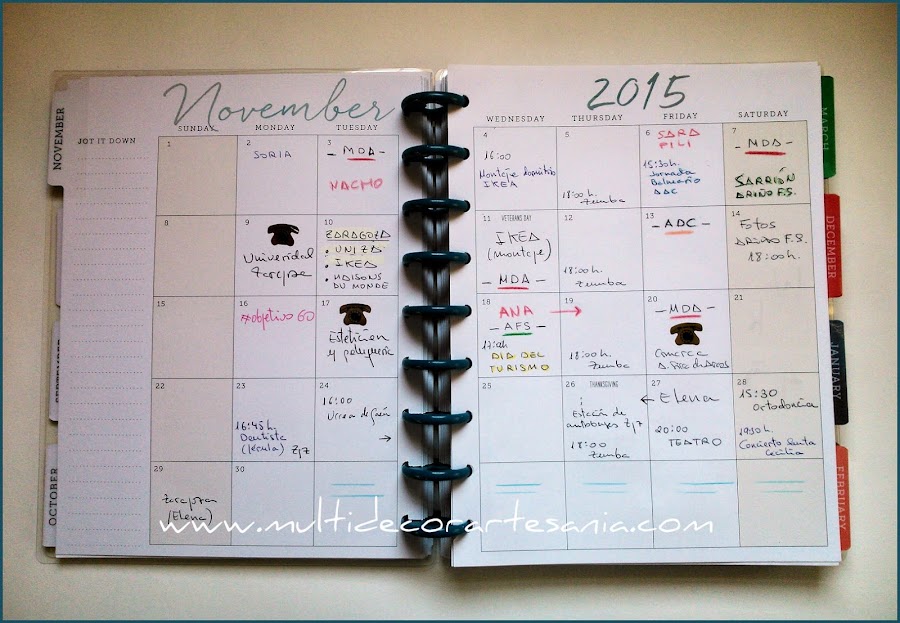 November 2015
NOVEMBER
JOT IT DOWN
SUNDAY MONDAY TUESDAY WEDNESDAY THURSDAY FRIDAY SATURDAY
1
2
SORIA
3
- MDA -
NACHO
4
16:00
Montaje
IKEA
5
18:00h.
Zumba
6
SARA
PILI
15:30h.
Jornada
Balneario
ADC
7
- MDA -
SARRIÓN
ARIÑO F.S.
8
9
Universidad
10
ZARAGOZA
• UNIZA
• IKEA
• MAISONS
DU MONDE
11 VETERANS DAY
IKEA
(montaje)
- MDA -
12
18:00h.
Zumba
13
- ADC -
14
Fotos
ARIÑO F.S.
18:00h.
15
16
#objetivo60
17
Esteticien
y peluquería
18
ANA
- AFS -
DIA DEL
TURISMO
19
18:00h.
Zumba
20
- MDA -
Comarca
21
22
23
16:45h.
Dentista
(Lécera)
24
16:00
25
26 THANKSGIVING
Estación de
autobuses
18:00
Zumba
27
← Elena
20:00
TEATRO
28
15:30
Ortodoncia
1930h.
Concierto Santa
Cecilia
29
(Elena)
30
OCTOBER
MARCH
DECEMBER
JANUARY
FEBRUARY
www.multidecorartesania.com